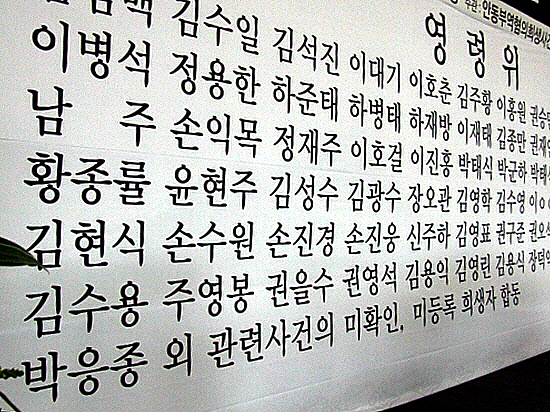 주관 : 안동부역혐의희생사건
영 령 위
김수일 김석진 이대기 이호춘 김주황 이홍원
이병석 정용한 하준태 하병태 하재방 이재태 김종만
남 주 손익목 정재주 이호걸 이진홍 박태식 박군하
황종률 윤현주 김성수 김광수 장오관 김영학 김수영
김현식 손수원 손진경 손진웅 신주하 김영표 권구준
김수용 주영봉 권을수 권영석 김용익 김영린 김용식
박응종 외 관련사건의 미확인, 미등록 희생자 합동